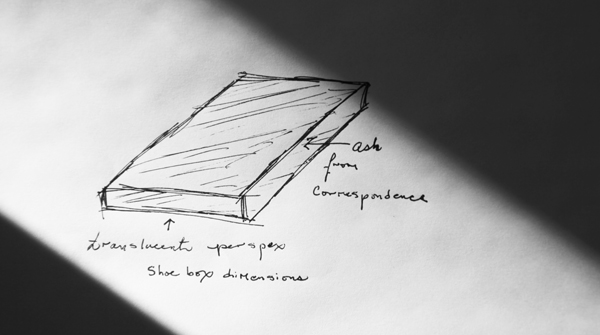 ash
from
Correspondence
translucent perspex
Shoe box dimensions